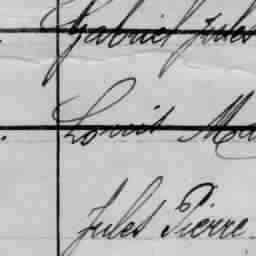 Gabriel Jules
Louis Ma
Jules Pierre